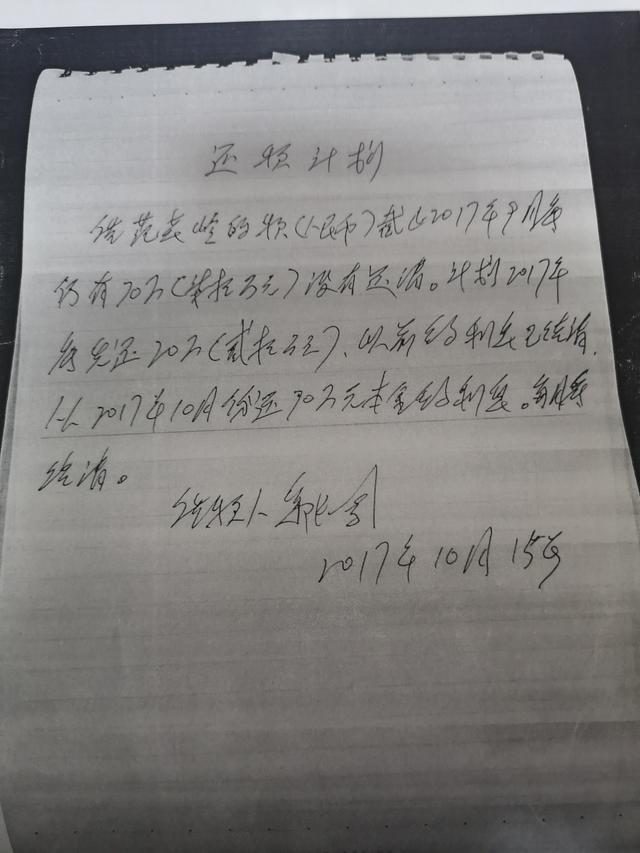 还款计划
借范 的款(人民币)截止2017年9月底
仍有70万(柒拾万元)没有还清。计划2017年
底先还20万(贰拾万元)、以前的利息已结清.
从2017年10月份还70万元本金的利息。每月底
结清。
借款人
2017年10月15号